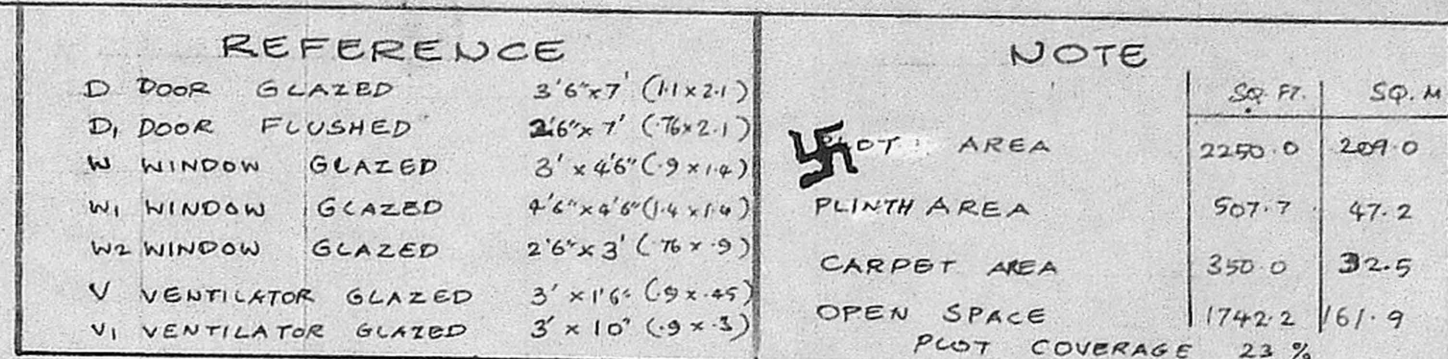 REFERENCE
D DOOR GLAZED 3'6"x7' (1.1x2.1)
D1 DOOR FLUSHED 2'6"x7' (.76x2.1)
W WINDOW GLAZED 3'x4'6" (.9x1.4)
W1 WINDOW GLAZED 4'6"x4'6" (1.4x1.4)
W2 WINDOW GLAZED 2'6"x3' (.76x.9)
V VENTILATOR GLAZED 3'x1'6" (.9x.45)
V1 VENTILATOR GLAZED 3'x10" (.9x.3)
NOTE
SQ. FT. SQ. M
AREA 2250.0 209.0
PLINTH AREA 507.7 47.2
CARPET AREA 350.0 32.5
OPEN SPACE 1742.2 161.9
PLOT COVERAGE 23%